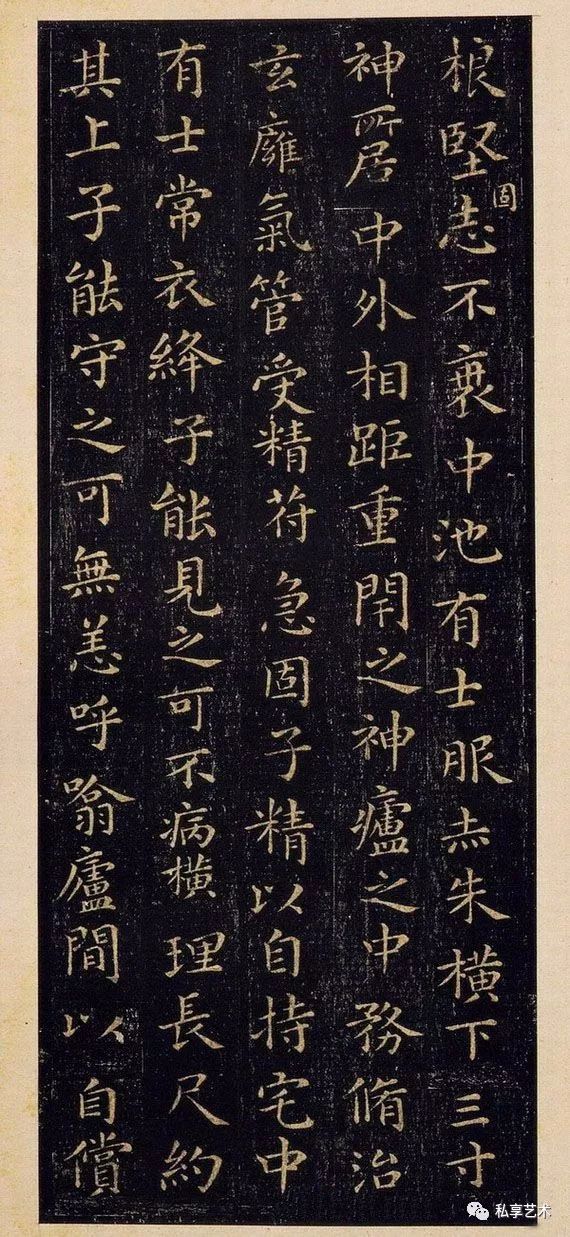 根堅志不衰中池有士服赤朱横下三寸
固
神所居中外相距重閇之神廬之中務脩治
玄廱氣管受精苻急固子精以自持宅中
有士常衣絳子能見之可不病横理長尺約
其上子能守之可無恙呼噏廬間以自償
私享艺术